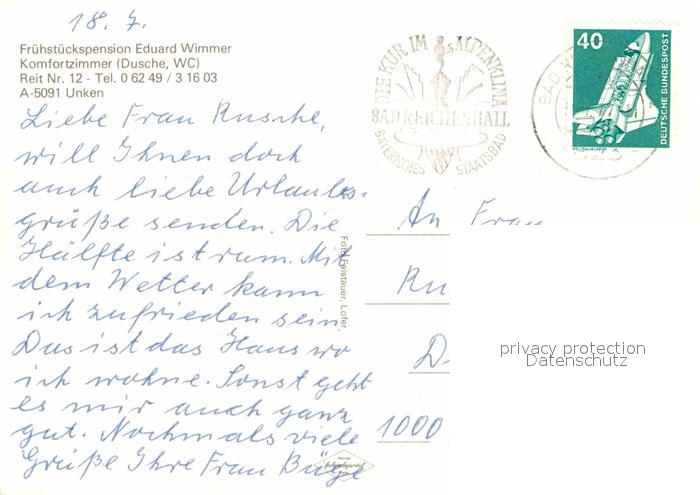 18. 7.
Frühstückspension Eduard Wimmer
Komfortzimmer (Dusche, WC)
Reit Nr. 12 - Tel. 0 62 49 / 3 16 03
A-5091 Unken
Liebe Frau Rusche,
will Ihnen doch
auch liebe Urlaubs-
grüße senden. Die
Hälfte ist rum. Mit
dem Wetter kann
ich zufrieden sein.
Das ist das Haus wo
ich wohne. Sonst geht
es mir auch ganz
gut. Nochmals viele
Grüße Ihre Frau Büge
Foto Faistauer, Lofer
DIE KUR IM ALPENKLIMA
BAD REICHENHALL
BAYERISCHES STAATSBAD
BAD
40
DEUTSCHE BUNDESPOST
WELTRAUMLABOR
An Frau
Ru
D.
1000
privacy protection
Datenschutz